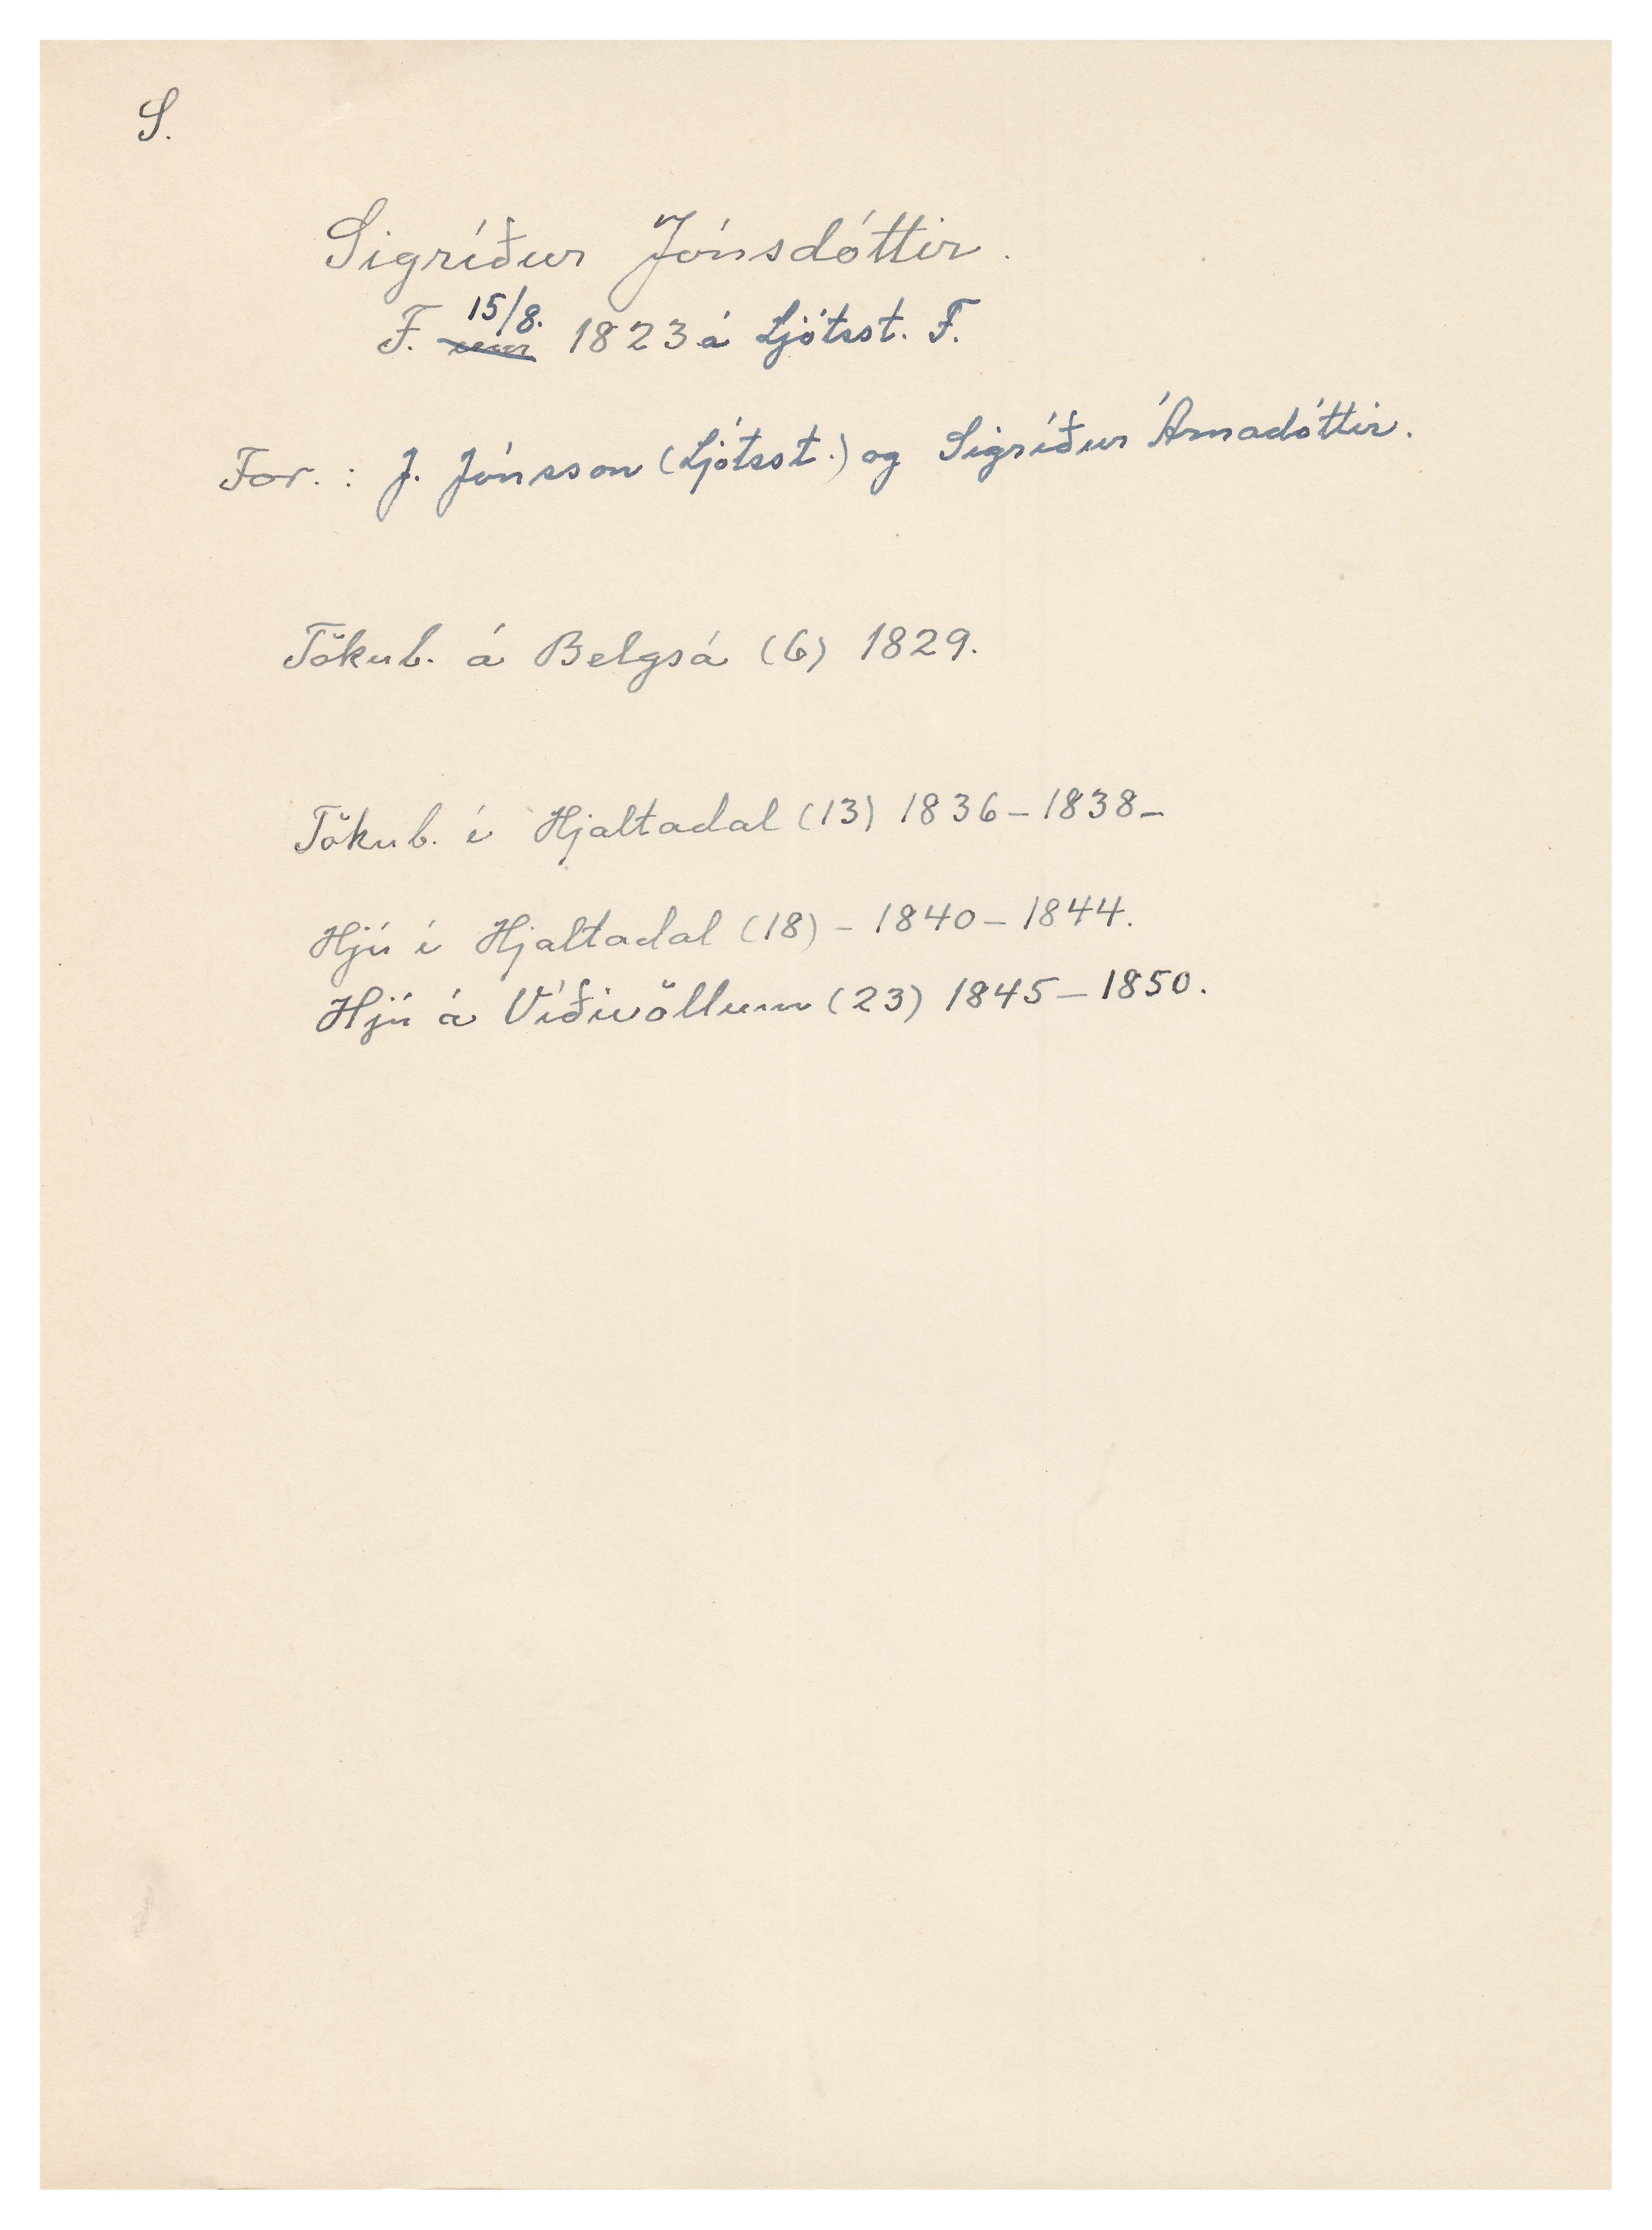 S.
Sigríður Jónsdóttir.
F. 15/8. 1823 á Ljótsst. F.
For.: J. Jónsson (Ljótsst.) og Sigríður Árnadóttir.
Tökub. á Belgsá (6) 1829.
Tökub. í Hjaltadal (13) 1836-1838-
Hjú í Hjaltadal (18) - 1840-1844.
Hjú á Víðivöllum (23) 1845-1850.